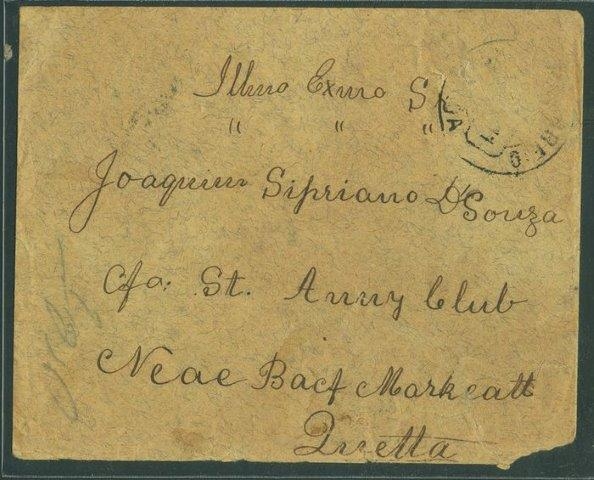 Illmo Exmo Sr
" " "
Joaquim Sipriano D'Souza
C/o: St. Anny Club
Neae Bacf Markeatt
Quetta